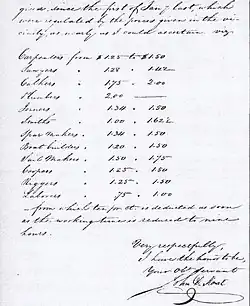 given since the first of Jany last, which
were regulated by the prices given in the vi-
cinity, as nearly as I could ascertain viz.
Carpenters from $1.25 to $1.50
Sawyers " 1.28 " 1.42
Calkers " 1.75 " 2.00
Plumbers " 2.00
Joiners " 1.34 " 1.50
Smiths " 1.00 " 1.62½
Spar Makers " 1.34 " 1.50
Boat builders " 1.20 " 1.50
Sail Makers " 1.50 " 1.75
Coopers " 1.25 " 1.50
Riggers " 1.25 " 1.50
Laborers " 75 " 1.00
from which ten per ct is deducted as soon
as the working time is reduced to nine
hours.
Very respectfully,
I have the honor to be,
Your Obt Servant